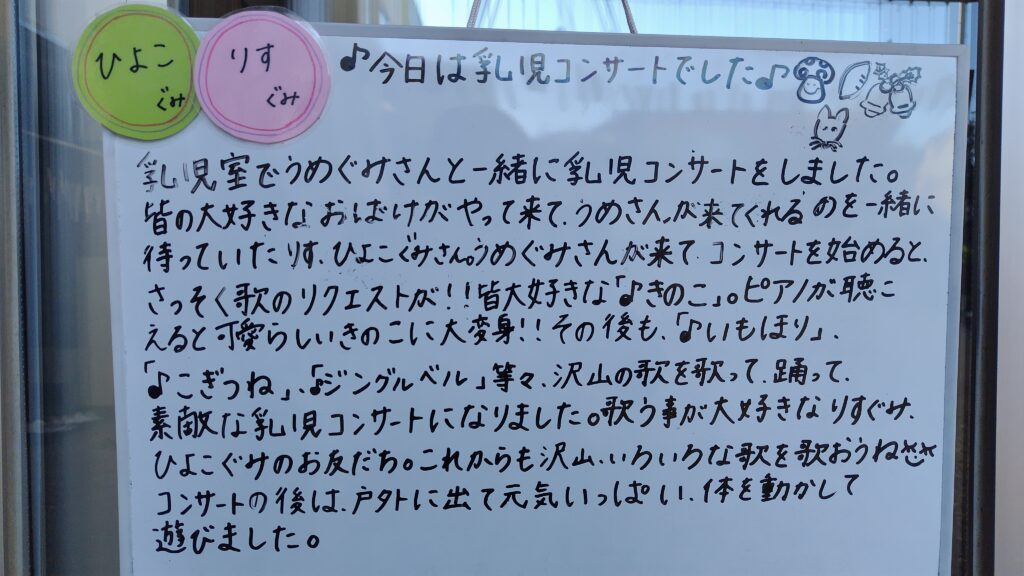 ひよこ
ぐみ
りす
ぐみ
♪今日は乳児コンサートでした♪
乳児室でうめぐみさんと一緒に乳児コンサートをしました。
皆の大好きなおばけがやって来て、うめさんが来てくれるのを一緒に
待っていたりす、ひよこぐみさん。うめぐみさんが来て、コンサートを始めると、
さっそく歌のリクエストが!!皆大好きな「♪きのこ」。ピアノが聴こ
えると可愛らしいきのこに大変身!!その後も、「♪いもほり」、
「♪こぎつね」、「♪ジングルベル」等々、沢山の歌を歌って、踊って、
素敵な乳児コンサートになりました。歌う事が大好きなりすぐみ、
ひよこぐみのお友だち。これからも沢山、いろいろな歌を歌おうね
コンサートの後は、戸外に出て元気いっぱい、体を動かして
遊びました。